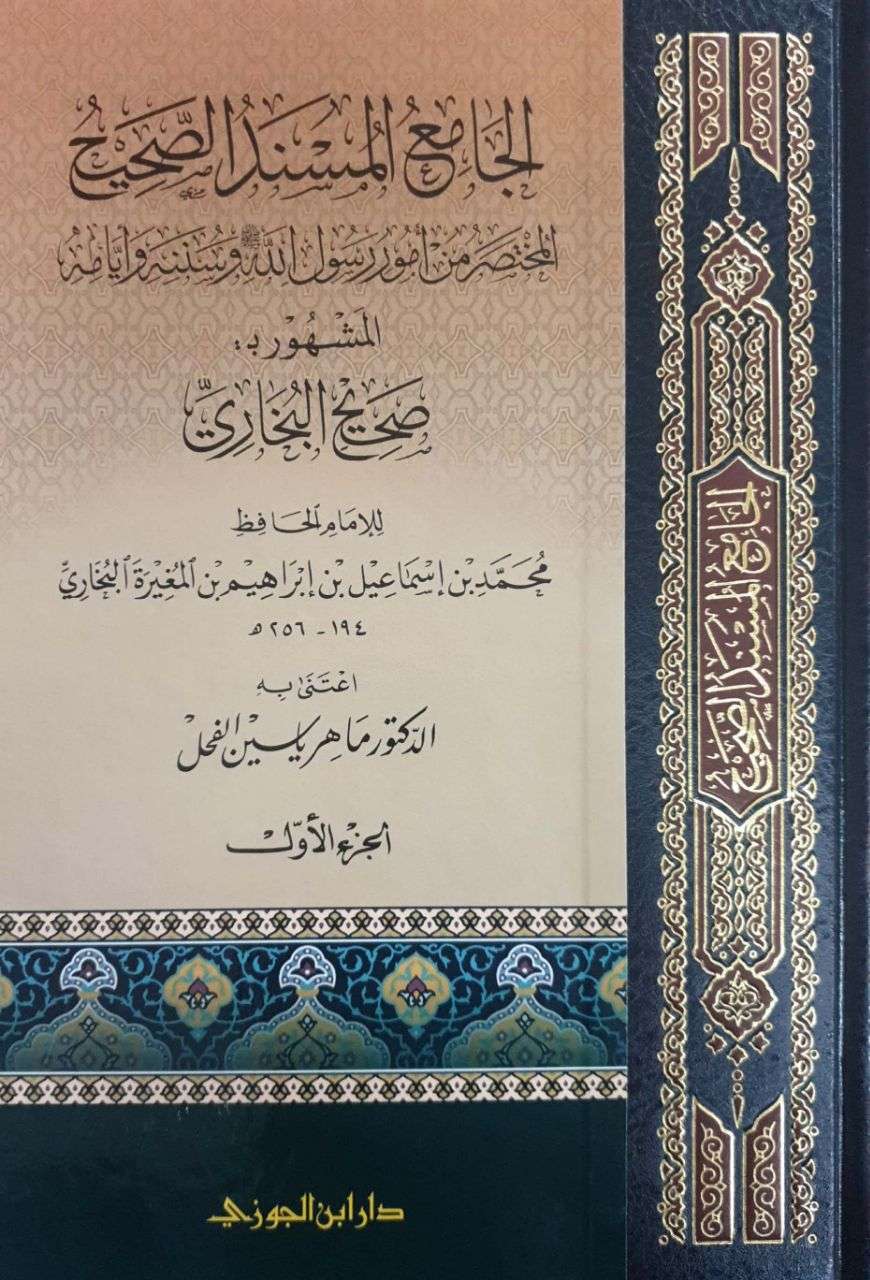 الجَامِعُ المُسْنَدُ الصَّحِيحُ
المُخْتَصَرُ مِنْ أُمُورِ رَسُولِ اللهِ ﷺ وَسُنَنِهِ وَأَيَّامِهِ
المَشْهُورُ بـ:
صَحِيحُ البُخَارِيِّ
لِلإِمَامِ الحَافِظِ
مُحَمَّدِ بْنِ إِسْمَاعِيلَ بْنِ إِبْرَاهِيمَ بْنِ المُغِيرَةِ البُخَارِيِّ
١٩٤ - ٢٥٦ هـ
اعْتَنَى بِهِ
الدّكتور ماهر ياسين الفحل
الجزء الأوّل
دار ابن الجوزي
الجامع المسند الصّحيح